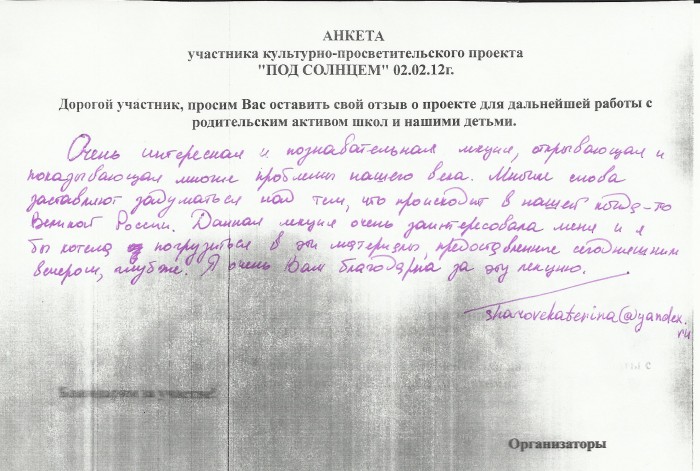 АНКЕТА
участника культурно-просветительского проекта
"ПОД СОЛНЦЕМ" 02.02.12г.
Дорогой участник, просим Вас оставить свой отзыв о проекте для дальнейшей работы с
родительским активом школ и нашими детьми.
Очень интересная и познавательная лекция, открывающая и
показывающая многие проблемы нашего века. Многие слова
заставляют задуматься над тем, что происходит в нашей когда-то
Великой России. Данная лекция очень заинтересовала меня и я
бы хотела погрузиться в эти материалы, предоставленные сегодняшним
вечером, глубже. Я очень Вам благодарна за эту лекцию.
sharovekaterina@yandex.
ru
Благодарим за участие!
Организаторы